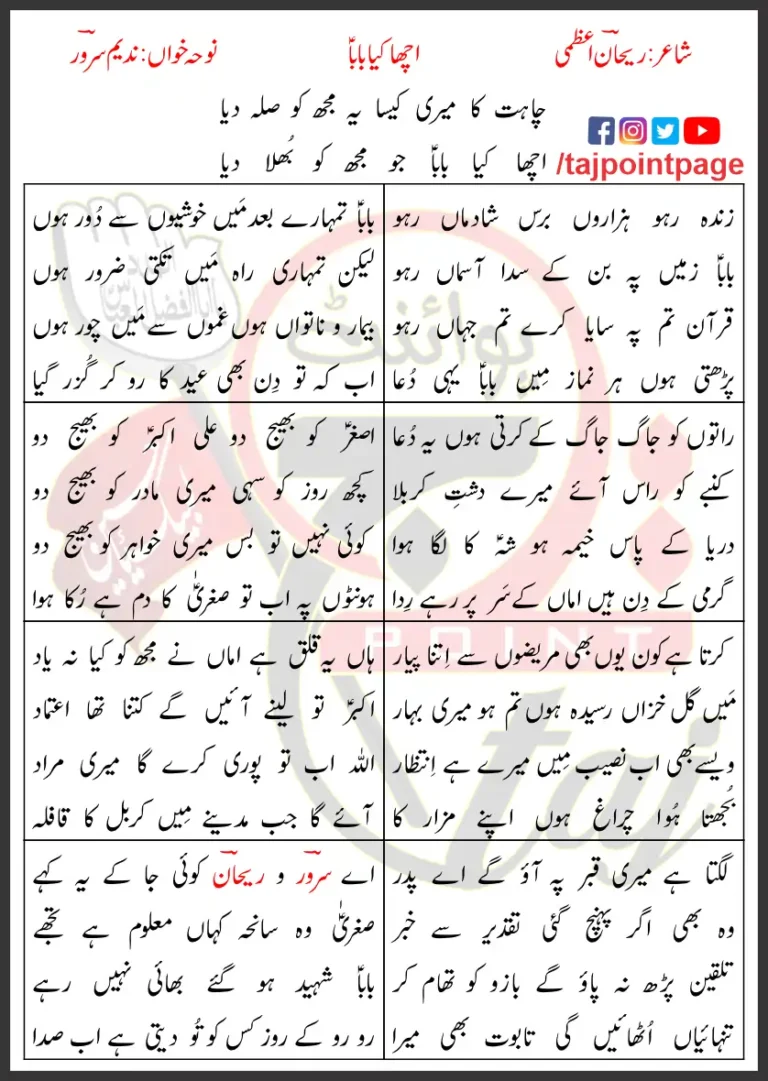 شاعر: ریحانؔ اعظمی
اچھا کیا باباؑ
نوحہ خواں: ندیم سرورؔ
چاہت کا میری کیسا یہ مجھ کو صلہ دیا
اچھا کیا باباؑ جو مجھ کو بُھلا دیا
/tajpointpage
زندہ رہو ہزاروں برس شادماں رہو
باباؑ زمیں پہ بن کے سدا آسماں رہو
قرآن تم پہ سایا کرے تم جہاں رہو
پڑھتی ہوں ہر نماز مِیں باباؑ یہی دُعا
باباؑ تمہارے بعد مَیں خوشیوں سے دُور ہوں
لیکن تمہاری راہ مَیں تَکتی ضرور ہوں
بیمار و ناتواں ہوں غموں سے مَیں چور ہوں
اب کہ تو دِن بھی عید کا رو کر گُزر گیا
راتوں کو جاگ جاگ کے کرتی ہوں یہ دُعا
کنبے کو راس آئے میرے دشتِ کربلا
دریا کے پاس خیمہ ہو شہؑ کا لگا ہوا
گرمی کے دِن ہیں اماں کے سَر پر رہے رِدا
اصغرؑ کو بھیج دو علی اکبرؑ کو بھیج دو
کچھ روز کو سہی میری مادر کو بھیج دو
کوئی نہیں تو بس میری خواہر کو بھیج دو
ہونٹوں پہ اب تو صغریٰؑ کا دم ہے رُکا ہوا
کرتا ہے کون یوں بھی مریضوں سے اِتنا پیار
مَیں گل خزاں رسیدہ ہوں تم ہو میری بہار
ویسے بھی اب نصیب مِیں میرے ہے اِنتظار
بُجھتا ہُوا چراغ ہوں اپنے مزار کا
ہاں یہ قلق ہے اماں نے مجھ کو کیا نہ یاد
اکبرؑ تو لینے آئیں گے کتنا تھا اعتماد
اللہ اب تو پوری کرے گا میری مراد
آئے گا جب مدینے مِیں کربل کا قافلہ
لگتا ہے میری قبر پہ آؤ گے اے پدر
وہ بھی اگر پہنچ گئی تقدیر سے خبر
تلقین پڑھ نہ پاؤ گے بازو کو تھام کر
تنہائیاں اُٹھائیں گی تابوت بھی میرا
اے سرورؔ و ریحانؔ کوئی جا کے یہ کہے
صغریٰؑ وہ سانحہ کہاں معلوم ہے تجھے
باباؑ شہید ہو گئے بھائی نہیں رہے
رو رو کے روز کس کو تُو دیتی ہے اب صدا
پوائنٹ
POINT
taj